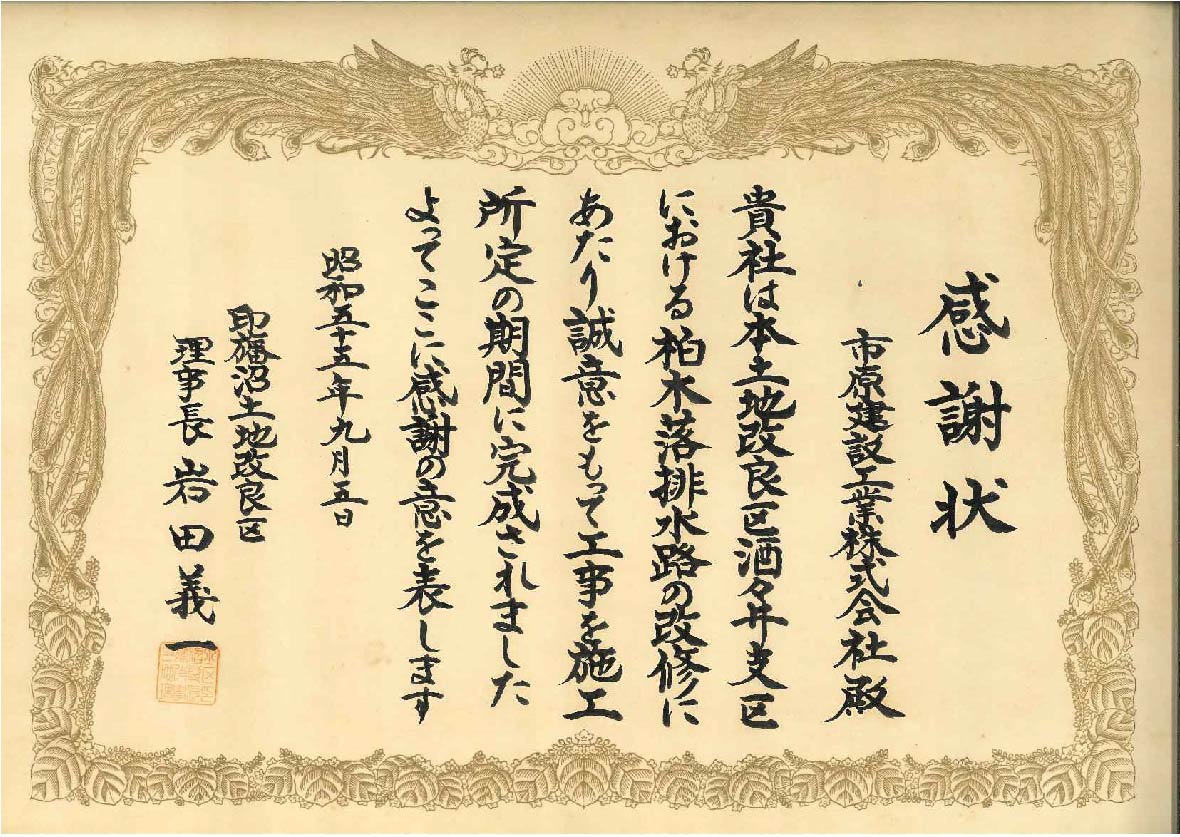 感謝状
市原建設工業株式会社殿
貴社は本土地改良区酒々井支区
における柏木落排水路の改修に
あたり誠意をもって工事を施工
所定の期間に完成されました
よってここに感謝の意を表します
昭和五十五年九月五日
印旛沼土地改良区
理事長岩田義一